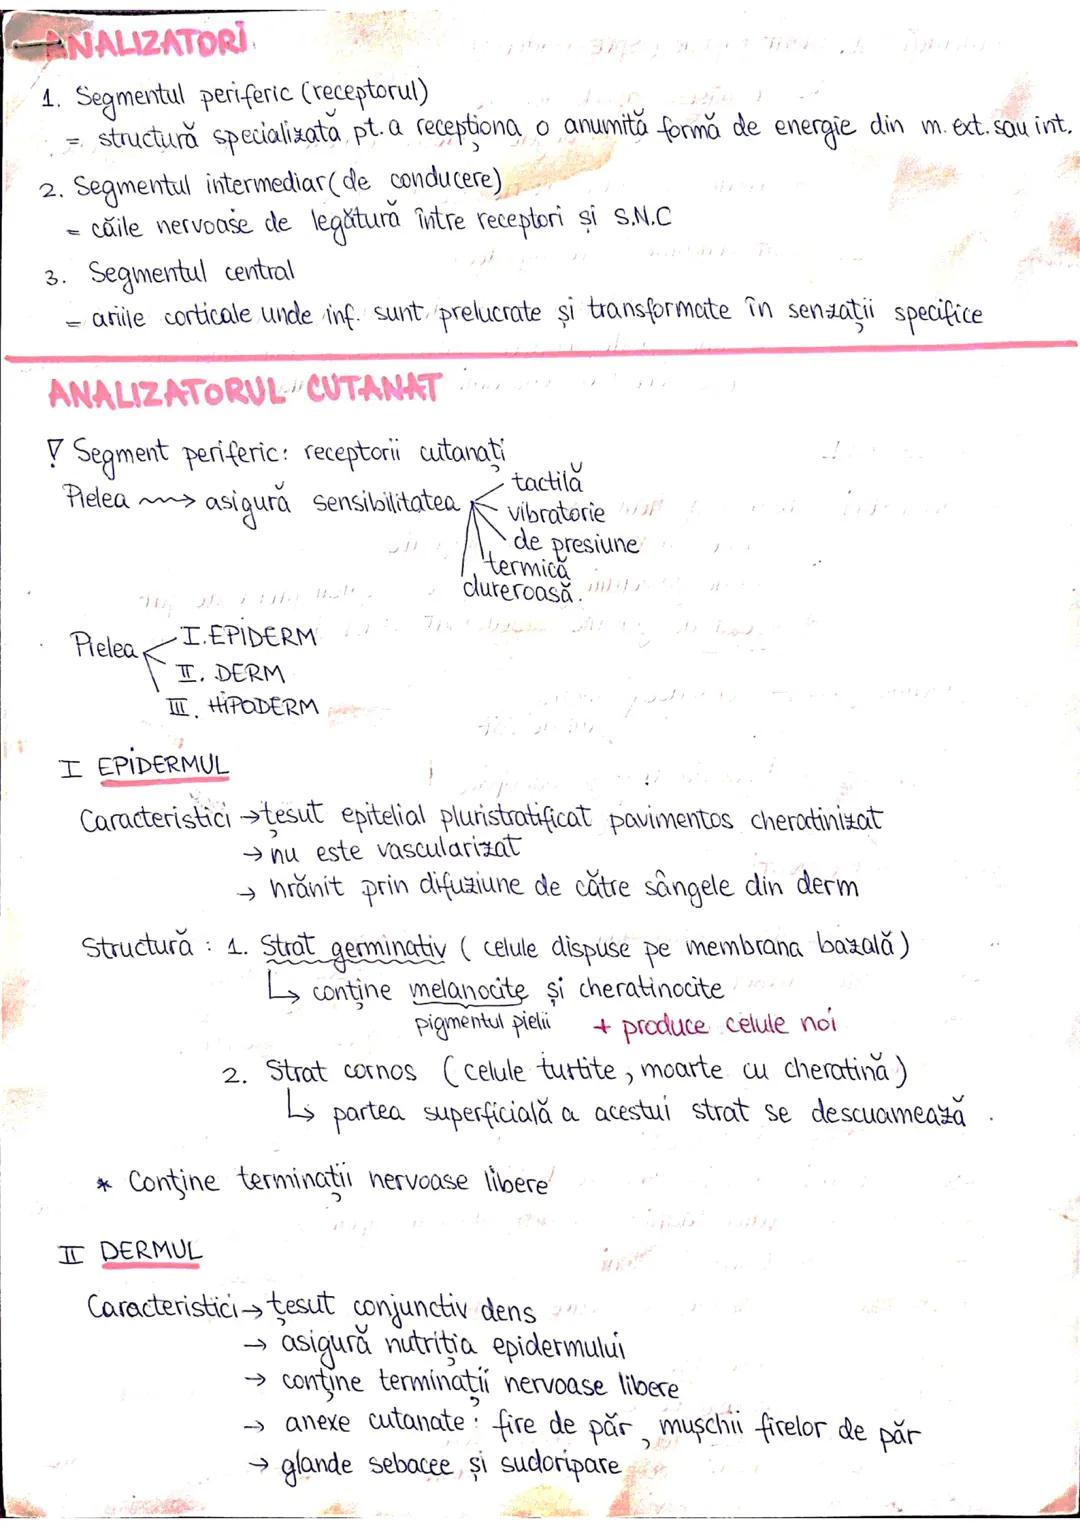 ANALIZATORI
1. Segmentul periferic (receptorul)
= structură specializată pt. a recepționa o anumită formă de energie din m. ext. sau int.
2. Segmentul intermediar (de conducere)
= căile nervoase de legătură între receptori și S.N.C
3. Segmentul central
= ariile corticale unde inf. sunt prelucrate și transformate în senzații specifice
ANALIZATORUL CUTANAT
Segment periferic: receptorii cutanați
Pielea → asigură sensibilitatea
tactilă
vibratorie
de presiune
termică
dureroasă.
Pielea
I. EPIDERM
II. DERM
III. HIPODERM
I EPIDERMUL
Caracteristici → țesut epitelial pluristratificat pavimentos cheratinizat
→ nu este vascularizat
→ hrănit prin difuziune de către sângele din derm
Structură : 1. Strat germinativ ( celule dispuse pe membrana bazală)
↳ conține melanocite și cheratinocite
pigmentul pielii + produce celule noi
2. Strat cornos ( celule turtite, moarte cu cheratină)
↳ partea superficială a acestui strat se descuamează.
* Conține terminații nervoase libere
II DERMUL
Caracteristici → țesut conjunctiv dens
→ asigură nutriția epidermului
→ conține terminații nervoase libere
→ anexe cutanate : fire de păr, mușchii firelor de păr
→ glande sebacee și sudoripare